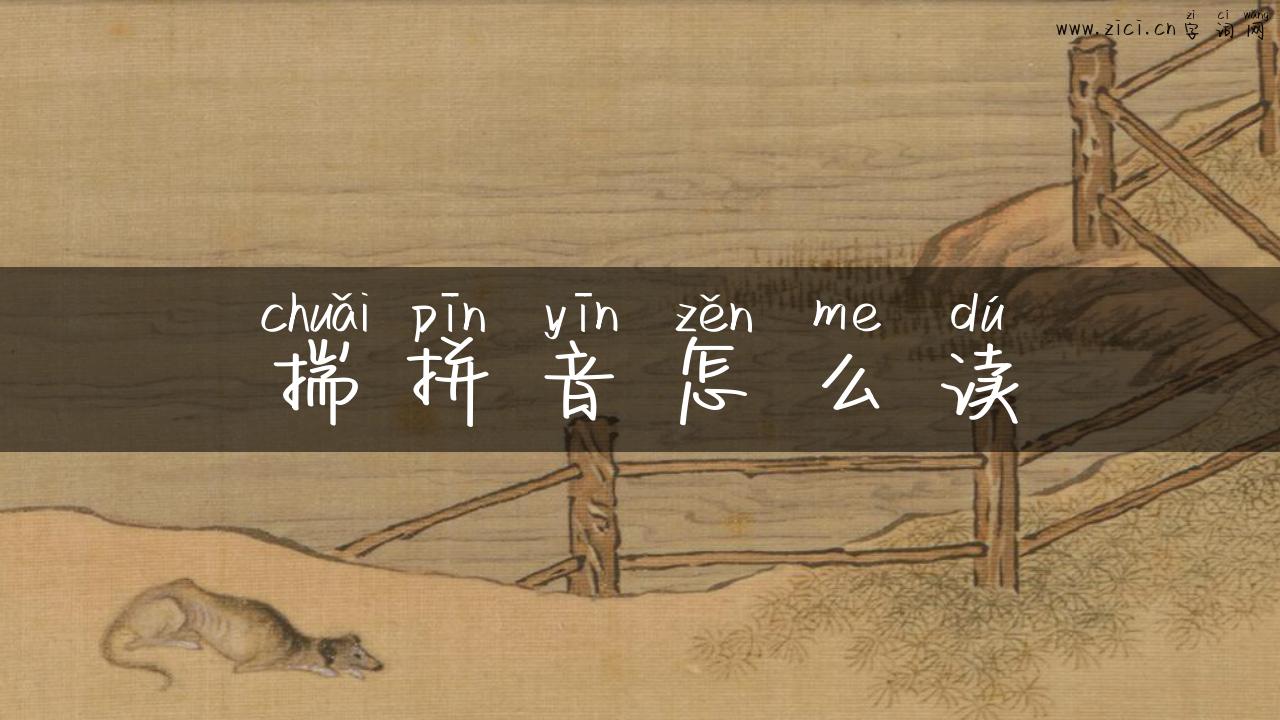 zì cí wǎng
www.zici.cn 字词网
chuǎi pīn yīn zěn me dú
揣拼音怎么读